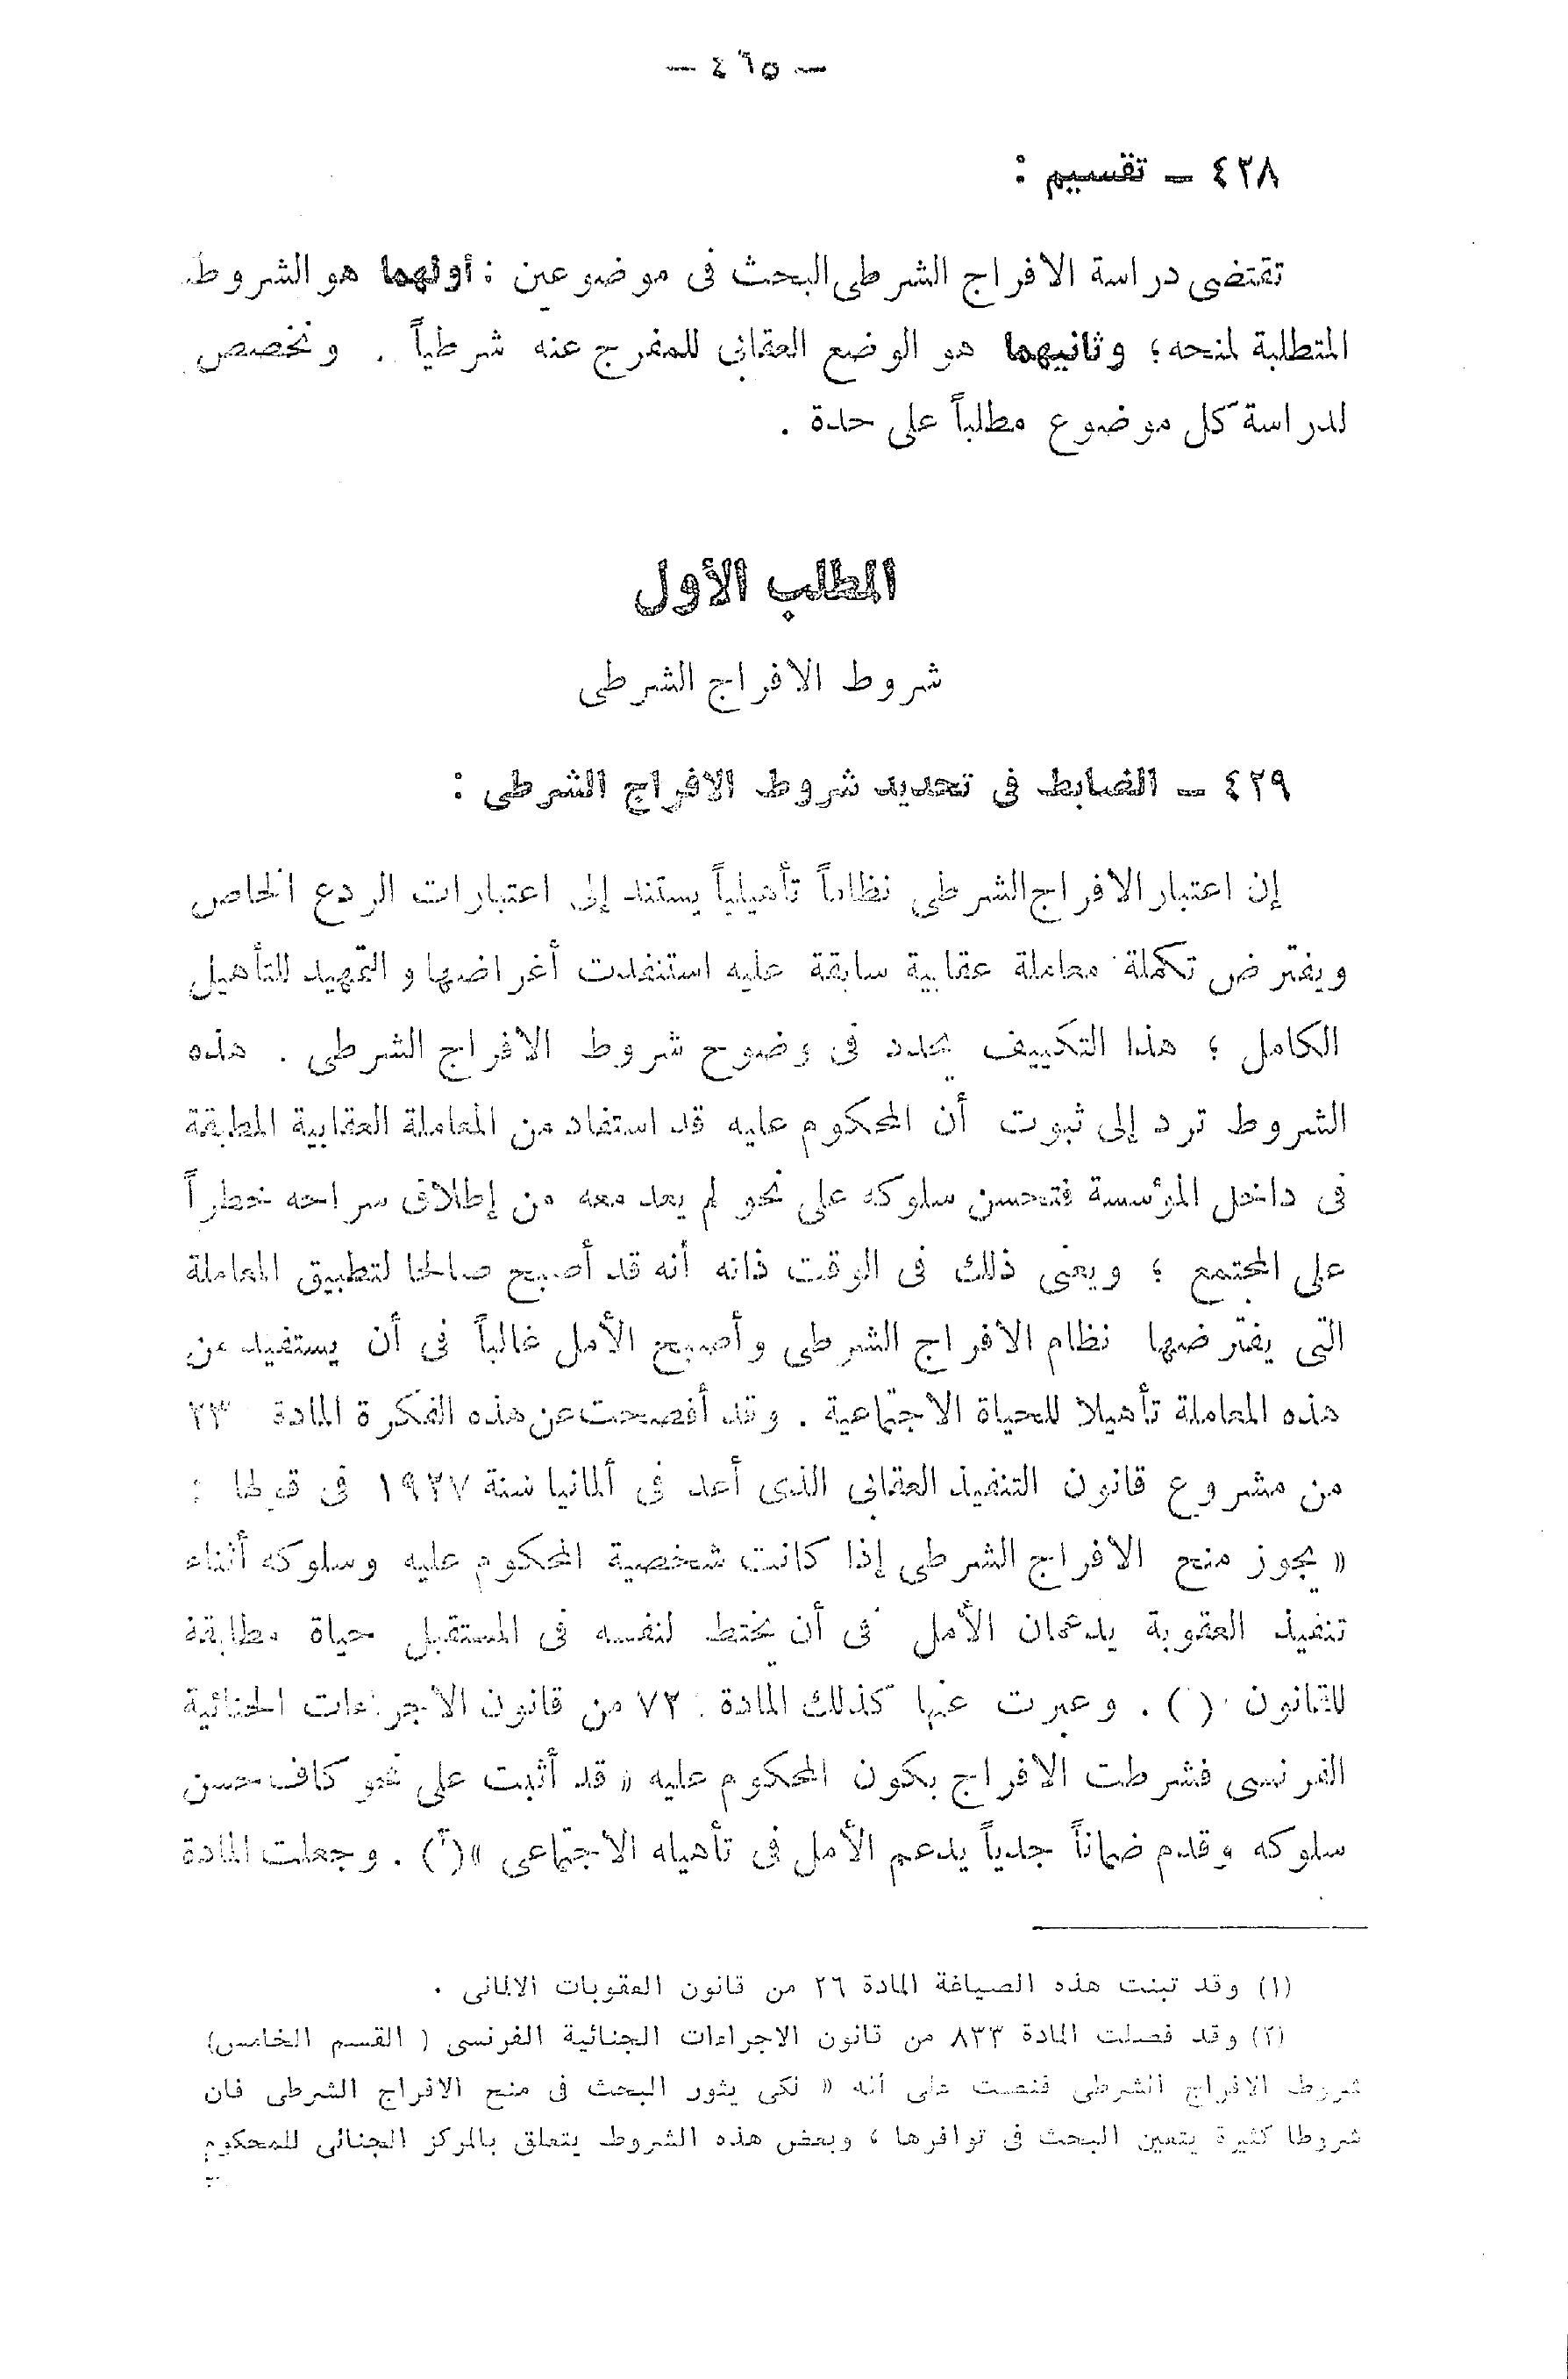 — ٤٦٥ —
٤٢٨ — تقسيم :
تقتضى دراسة الافراج الشرطى البحث فى موضوعين : أولهما هو الشروط
المتطلبة لمنحه ؛ وثانيهما هو الوضع العقابى للمفرج عنه شرطياً . ونخصص
لدراسة كل موضوع مطلباً على حدة .
المطلب الأول
شروط الافراج الشرطى
٤٢٩ — الضابط فى تحديد شروط الافراج الشرطى :
إن اعتبار الافراج الشرطى نظاماً تأهيلياً يستند إلى اعتبارات الردع الخاص
ويفترض تكملة معاملة عقابية سابقة عليه استنفدت أغراضها والتمهيد للتأهيل
الكامل ؛ هذا التكييف يحدد فى وضوح شروط الافراج الشرطى . هذه
الشروط ترد إلى ثبوت أن المحكوم عليه قد استفاد من المعاملة العقابية المطبقة
فى داخل المؤسسة فتحسن سلوكه على نحو لم يعد معه من إطلاق سراحه خطراً
على المجتمع ؛ ويعنى ذلك فى الوقت ذاته أنه قد أصبح صالحا لتطبيق المعاملة
التى يفترضها نظام الافراج الشرطى وأصبح الأمل غالباً فى أن يستفيد من
هذه المعاملة تأهيلا للحياة الاجتماعية . وقد أفصحت عن هذه الفكرة المادة ٢٣
من مشروع قانون التنفيذ العقابى الذى أعد فى ألمانيا سنة ١٩٢٧ فى قولها :
« يجوز منح الافراج الشرطى إذا كانت شخصية المحكوم عليه وسلوكه أثناء
تنفيذ العقوبة يدعمان الأمل فى أن يختط لنفسه فى المستقبل حياة مطابقة
للقانون ( ) . وعبرت عنها كذلك المادة ٧٢ من قانون الاجراءات الجنائية
الفرنسى فشرطت الافراج بكون المحكوم عليه « قد أثبت على نحو كاف حسن
سلوكه وقدم ضماناً جدياً يدعم الأمل فى تأهيله الاجتماعى »(٢) . وجعلت المادة
(١) وقد تبنت هذه الصياغة المادة ٢٦ من قانون العقوبات الالمانى .
(٢) وقد فصلت المادة ٨٣٣ من قانون الاجراءات الجنائية الفرنسى ( القسم الخامس)
شروط الافراج الشرطى فنصت على أنه « لكى يثور البحث فى منح الافراج الشرطى فان
شروطا كثيرة يتعين البحث فى توافرها ، وبعض هذه الشروط يتعلق بالمركز الجنائى للمحكوم